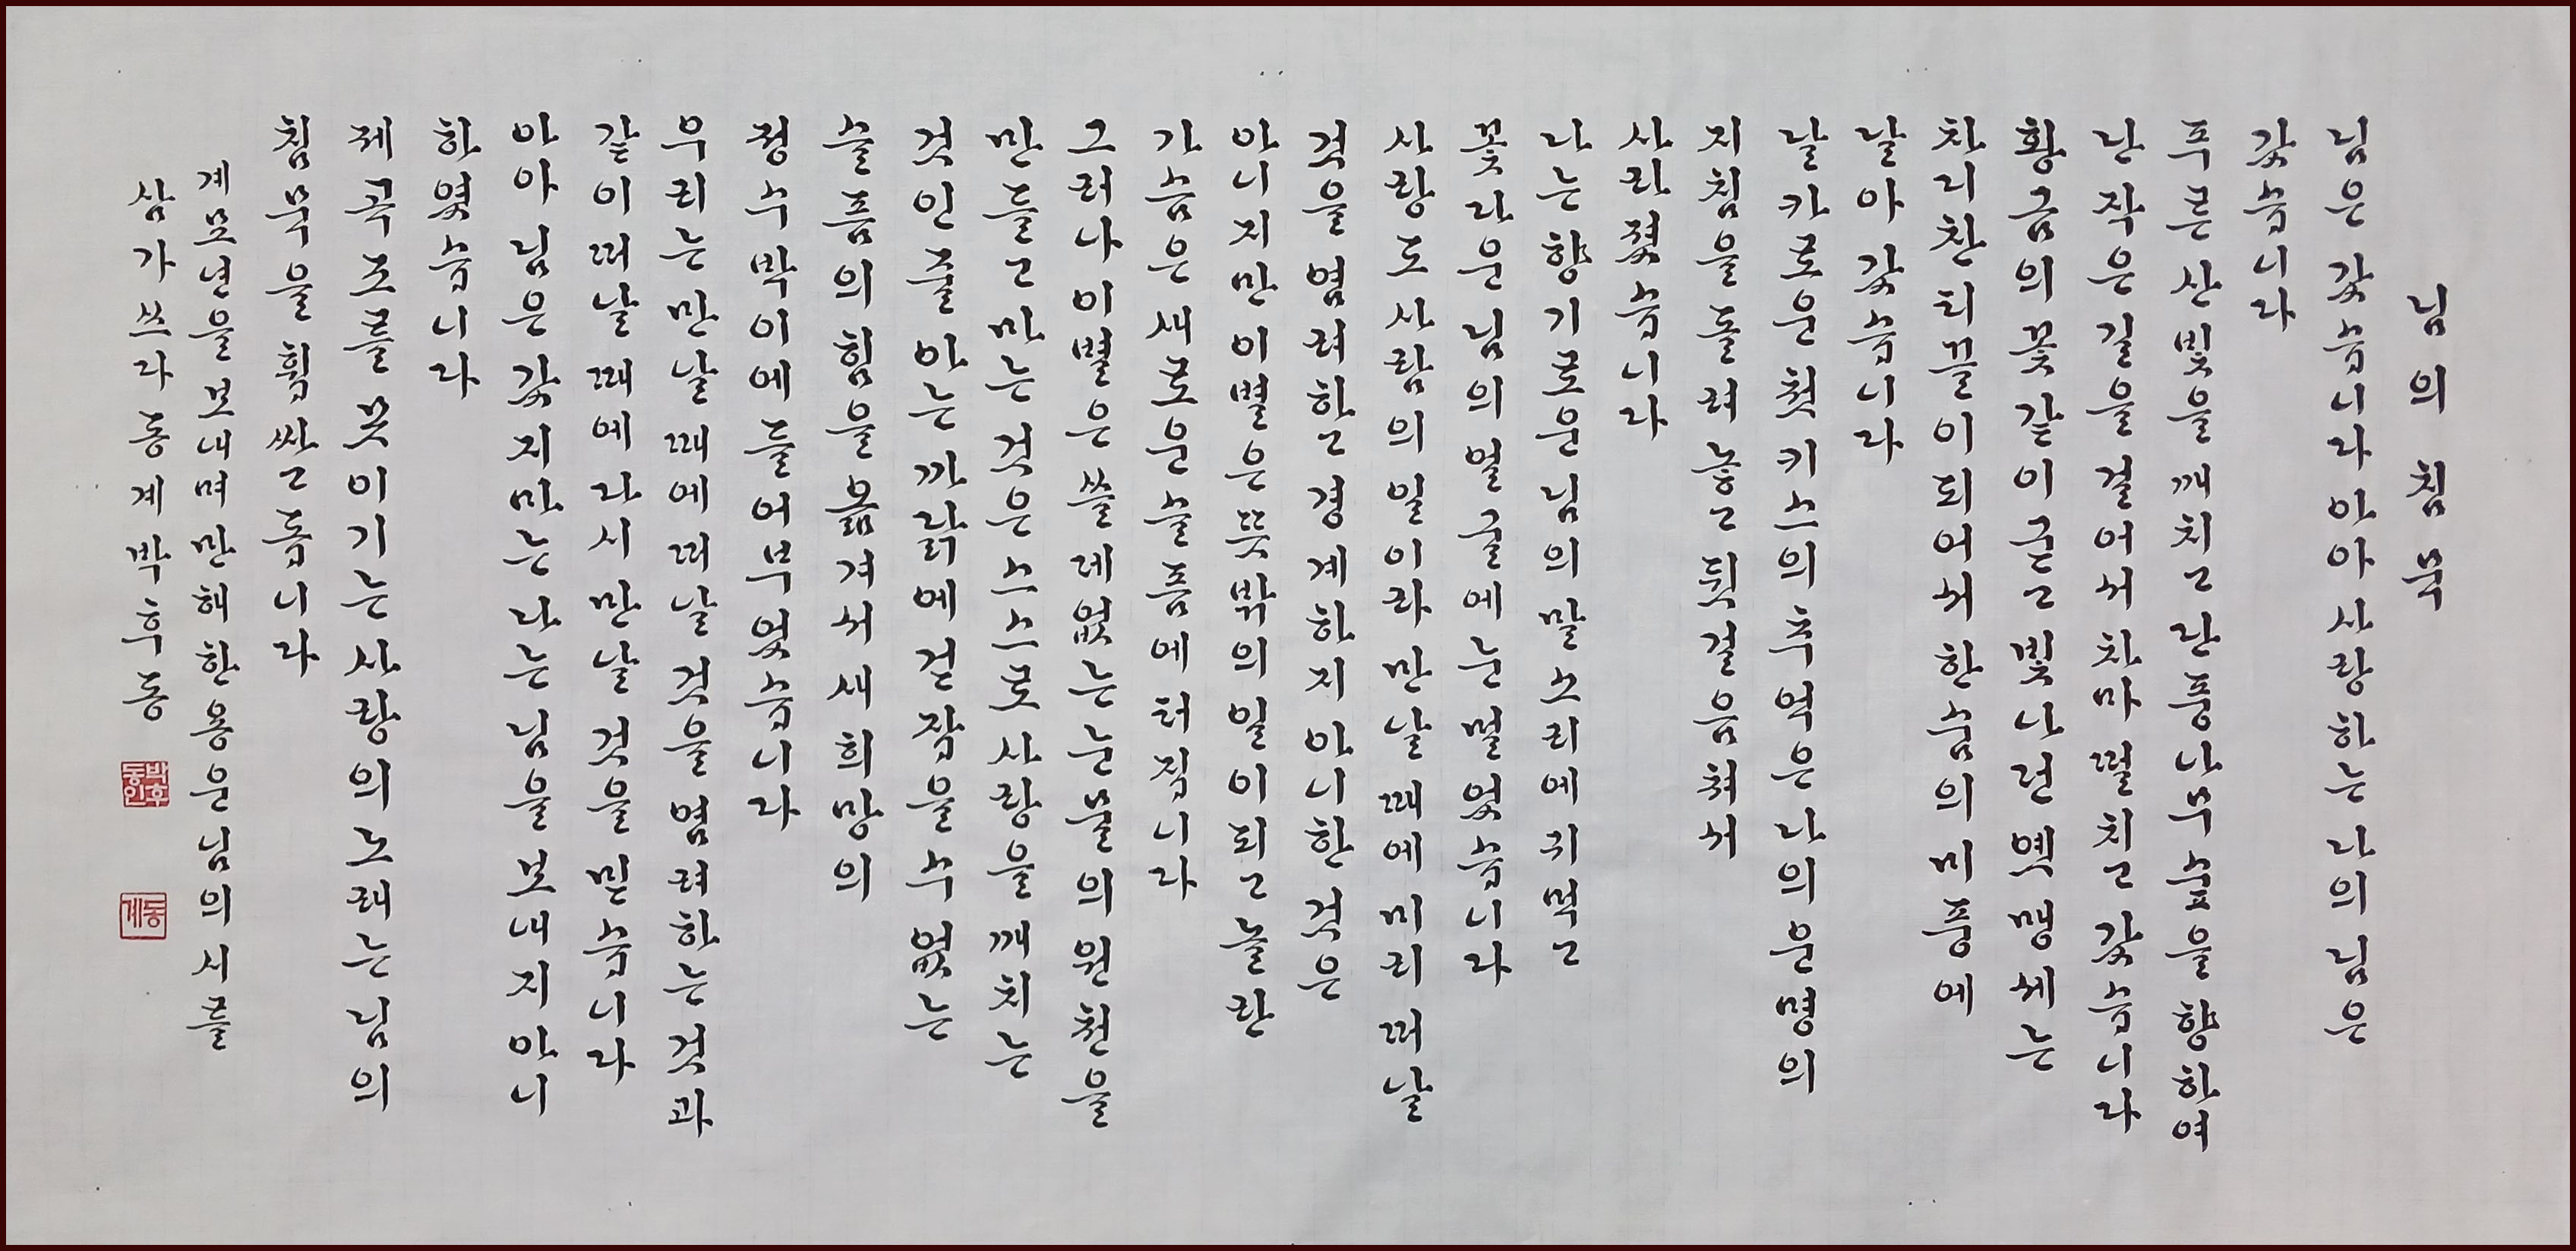 님의 침묵
님은 갔습니다 아아 사랑하는 나의 님은
갔습니다
푸른 산빛을 깨치고 단풍나무 숲을 향하여
난 작은 길을 걸어서 차마 떨치고 갔습니다
황금의 꽃같이 굳고 빛나던 옛 맹세는
차디찬 티끌이 되어서 한숨의 미풍에
날아갔습니다
날카로운 첫 키스의 추억은 나의 운명의
지침을 돌려 놓고 뒷걸음쳐서
사라졌습니다
나는 향기로운 님의 말소리에 귀먹고
꽃다운 님의 얼굴에 눈멀었습니다
사랑도 사람의 일이라 만날 때에 미리 떠날
것을 염려하고 경계하지 아니한 것은
아니지만 이별은 뜻밖의 일이 되고 놀란
가슴은 새로운 슬픔에 터집니다
그러나 이별은 쓸데없는 눈물의 원천을
만들고 마는 것은 스스로 사랑을 깨치는
것인 줄 아는 까닭에 걷잡을 수 없는
슬픔의 힘을 옮겨서 새 희망의
정수박이에 들어부었습니다
우리는 만날 때에 떠날 것을 염려하는 것과
같이 떠날 때에 다시 만날 것을 믿습니다
아아 님은 갔지마는 나는 님을 보내지 아니
하였습니다
제 곡조를 못 이기는 사랑의 노래는 님의
침묵을 휩싸고 돕니다
계묘년을 보내며 만해 한용운님의 시를
삼가 쓰다 동계 박후동
박후동인
동계